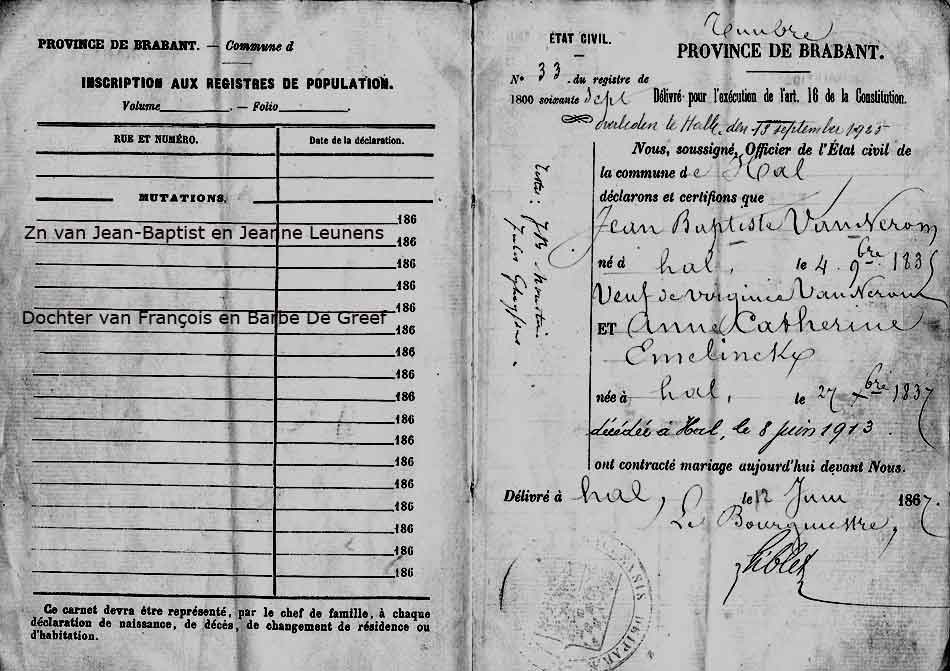 PROVINCE DE BRABANT. — Commune d
INSCRIPTION AUX REGISTRES DE POPULATION.
Volume . — Folio .
RUE ET NUMÉRO.
Date de la déclaration.
MUTATIONS.
186
Zn van Jean-Baptist en Jeanne Leunens
186
186
186
186
Dochter van François en Barbe De Greef
186
186
186
186
186
186
186
186
186
186
186
Ce carnet devra être représenté, par le chef de famille, à chaque
déclaration de naissance, de décès, de changement de résidence ou
d'habitation.
Timbre
ÉTAT CIVIL.
PROVINCE DE BRABANT.
N° 33 du registre de
1800 soixante sept
Délivré pour l'exécution de l'art. 16 de la Constitution.
overleden te Halle, den 13 september 1925
Nous, soussigné, Officier de l'État civil de
la commune de Hal
déclarons et certifions que
Jean Baptiste Van Nerom
né à hal, le 4 9bre 1835
Veuf de Virginie Van Nerom
ET Anne Catherine
Emelinckx
née à hal, le 27 xbre 1837
décédée à Hal, le 8 juin 1913.
ont contracté mariage aujourd'hui devant Nous.
Délivré à hal, le 12 Juin 1867.
Le Bourgmestre,